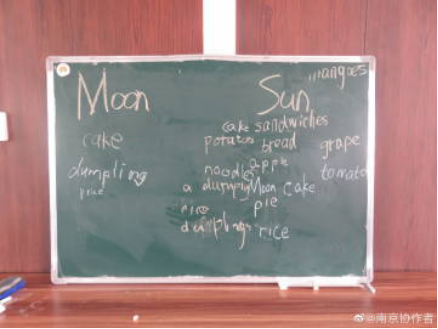 Moon
cake
dumpling
Sun
mangoes
cake sandwiches
potatoes bread grape
noodles apple tomato
a dumpling Moon cake
rice pie
dumplings rice
@南京协作者